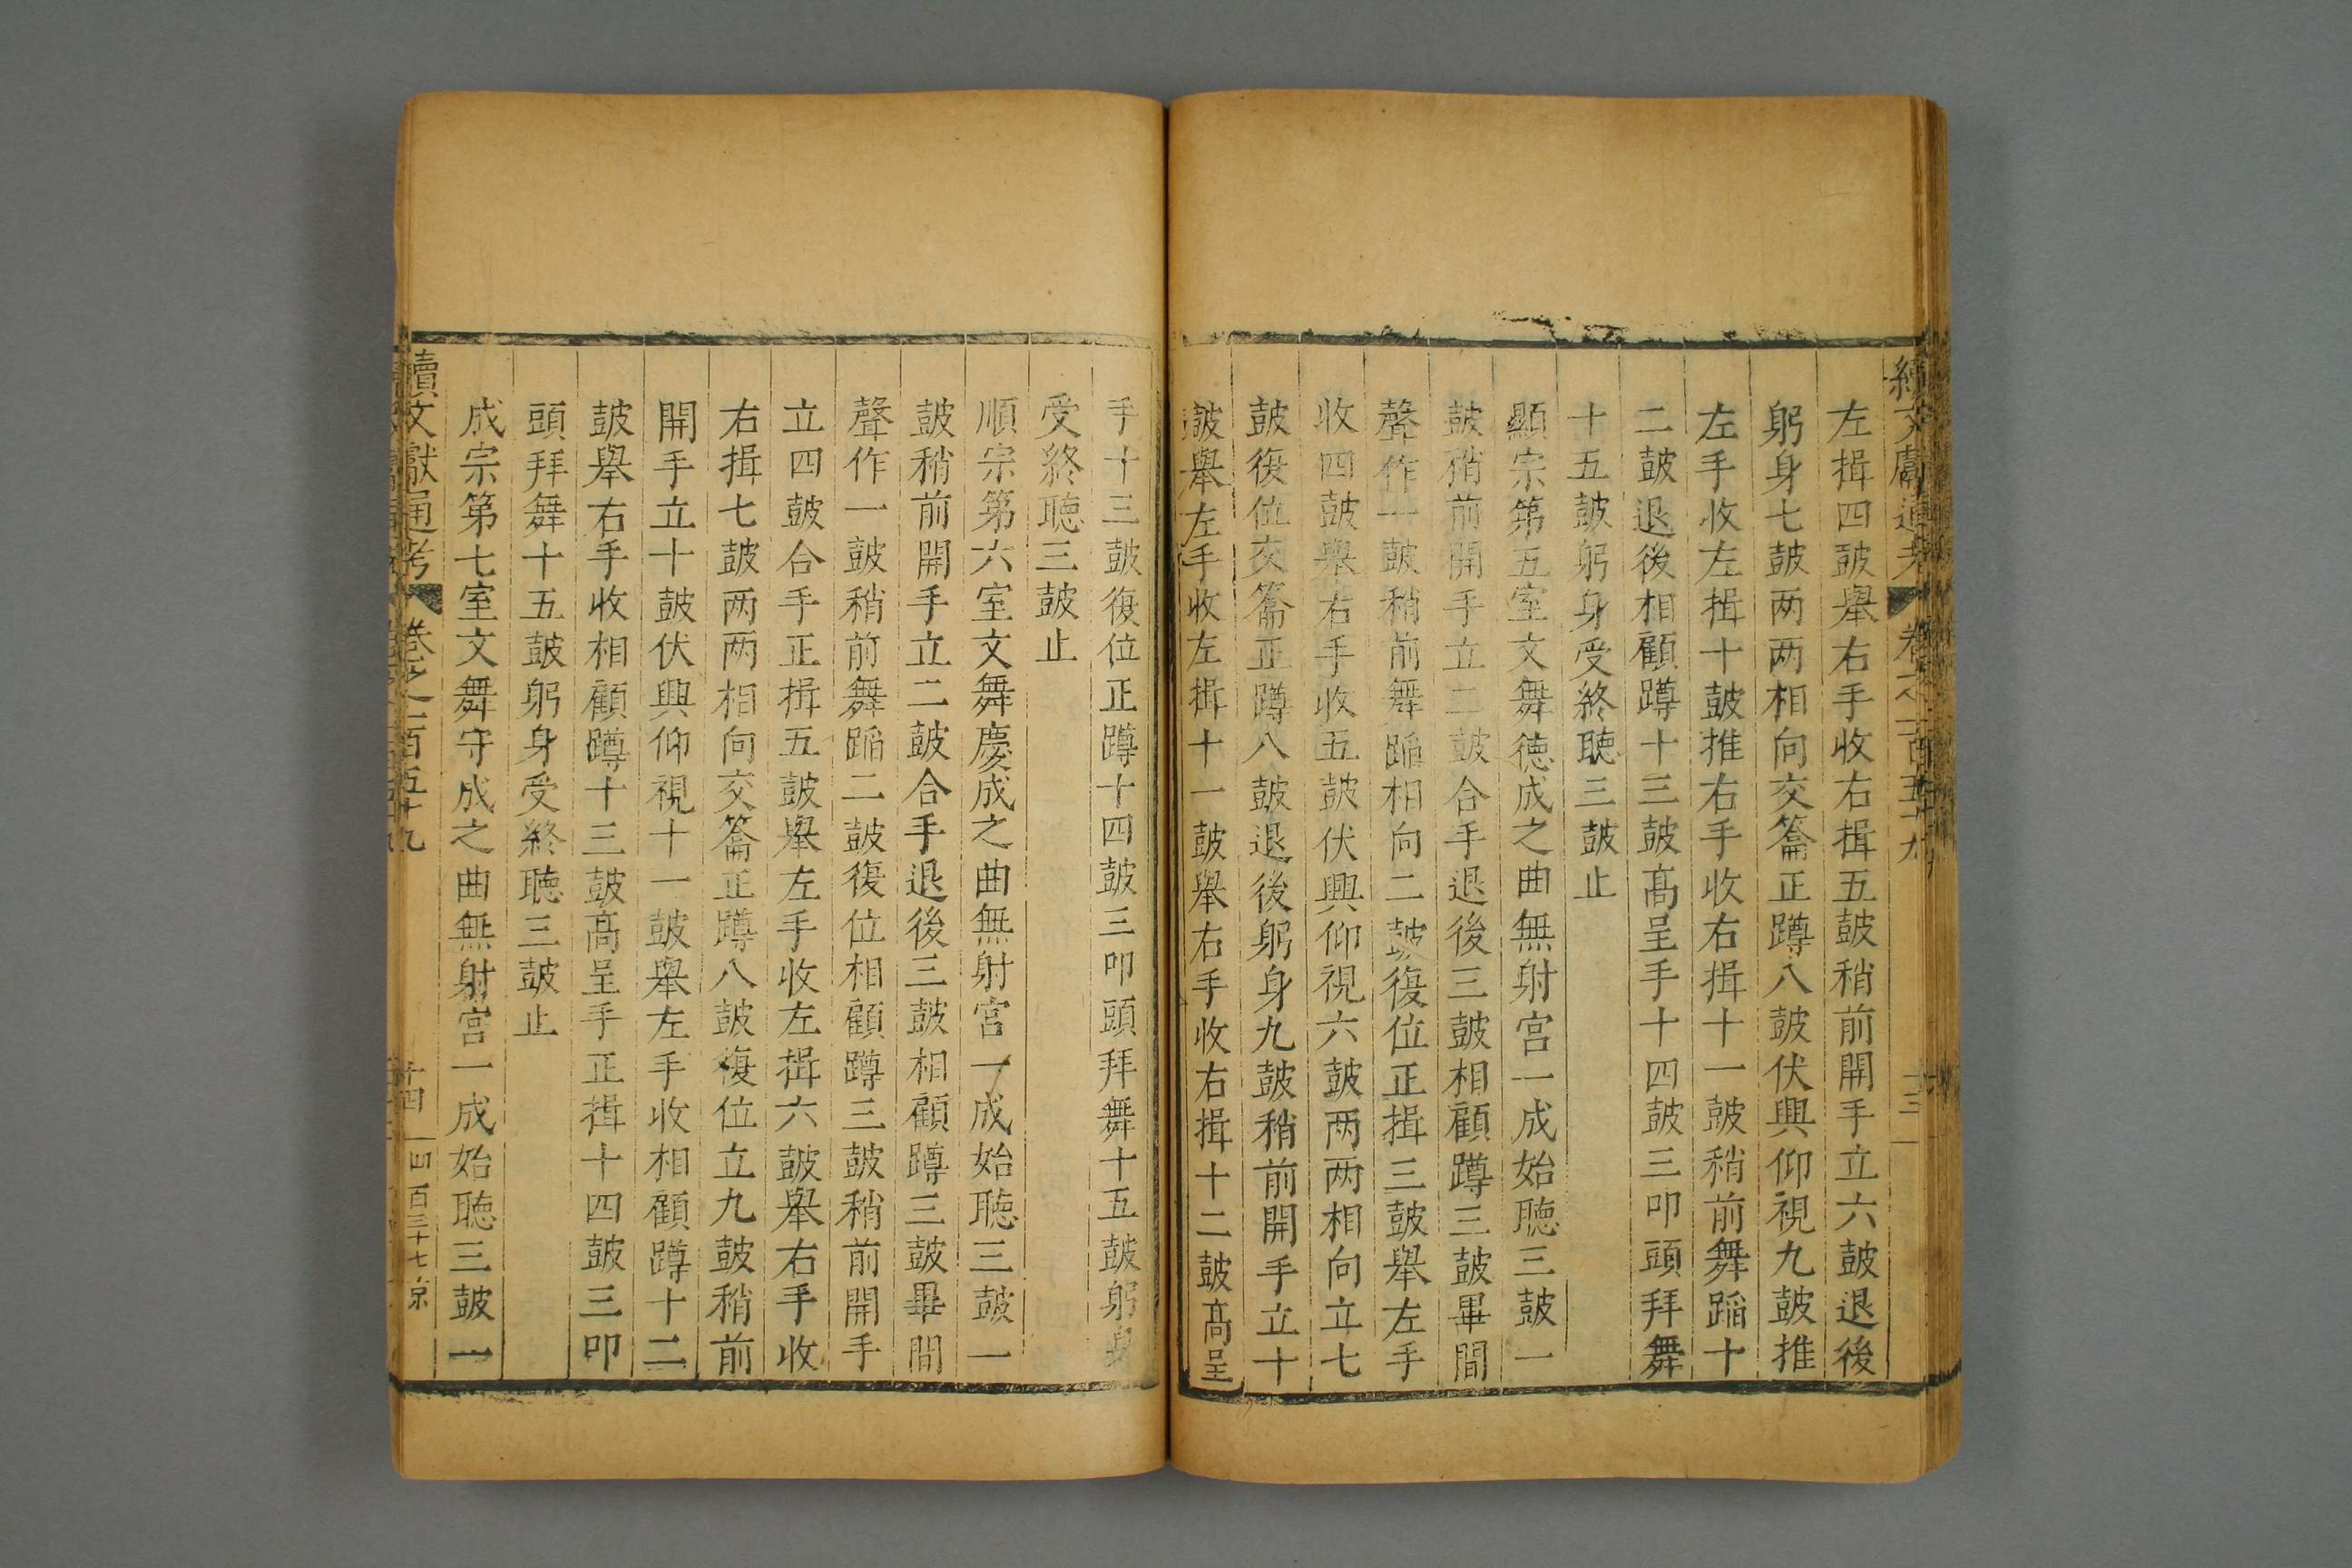 續文獻通考 卷之一百五十九 十三
左揖四鼓舉右手收右揖五鼓稍前開手立六鼓退後
躬身七鼓两两相向交籥正蹲八鼓伏興仰視九鼓推
左手收左揖十鼓推右手收右揖十一鼓稍前舞蹈十
二鼓退後相顧蹲十三鼓髙呈手十四鼓三叩頭拜舞
十五鼓躬身受終聽三鼓止
顯宗第五室文舞德成之曲無射宫一成始聽三鼓一
鼓稍前開手立二鼓合手退後三鼓相顧蹲三鼓畢間
聲作一鼓稍前舞蹈相向二鼓復位正揖三鼓舉左手
收四鼓舉右手收五鼓伏興仰視六鼓两两相向立七
鼓復位交籥正蹲八鼓退後躬身九鼓稍前開手立十
鼓舉左手收左揖十一鼓舉右手收右揖十二鼓髙呈
手十三鼓復位正蹲十四鼓三叩頭拜舞十五鼓躬身
受終聽三鼓止
順宗第六室文舞慶成之曲無射宫一成始聽三鼓一
鼓稍前開手立二鼓合手退後三鼓相顧蹲三鼓畢間
聲作一鼓稍前舞蹈二鼓復位相顧蹲三鼓稍前開手
立四鼓合手正揖五鼓舉左手收左揖六鼓舉右手收
右揖七鼓两两相向交籥正蹲八鼓復位立九鼓稍前
開手立十鼓伏興仰視十一鼓舉左手收相顧蹲十二
鼓舉右手收相顧蹲十三鼓髙呈手正揖十四鼓三叩
頭拜舞十五鼓躬身受終聽三鼓止
成宗第七室文舞守成之曲無射宫一成始聽三鼓一
續文獻通考 卷之一百五十九 十四 四百三十七 京